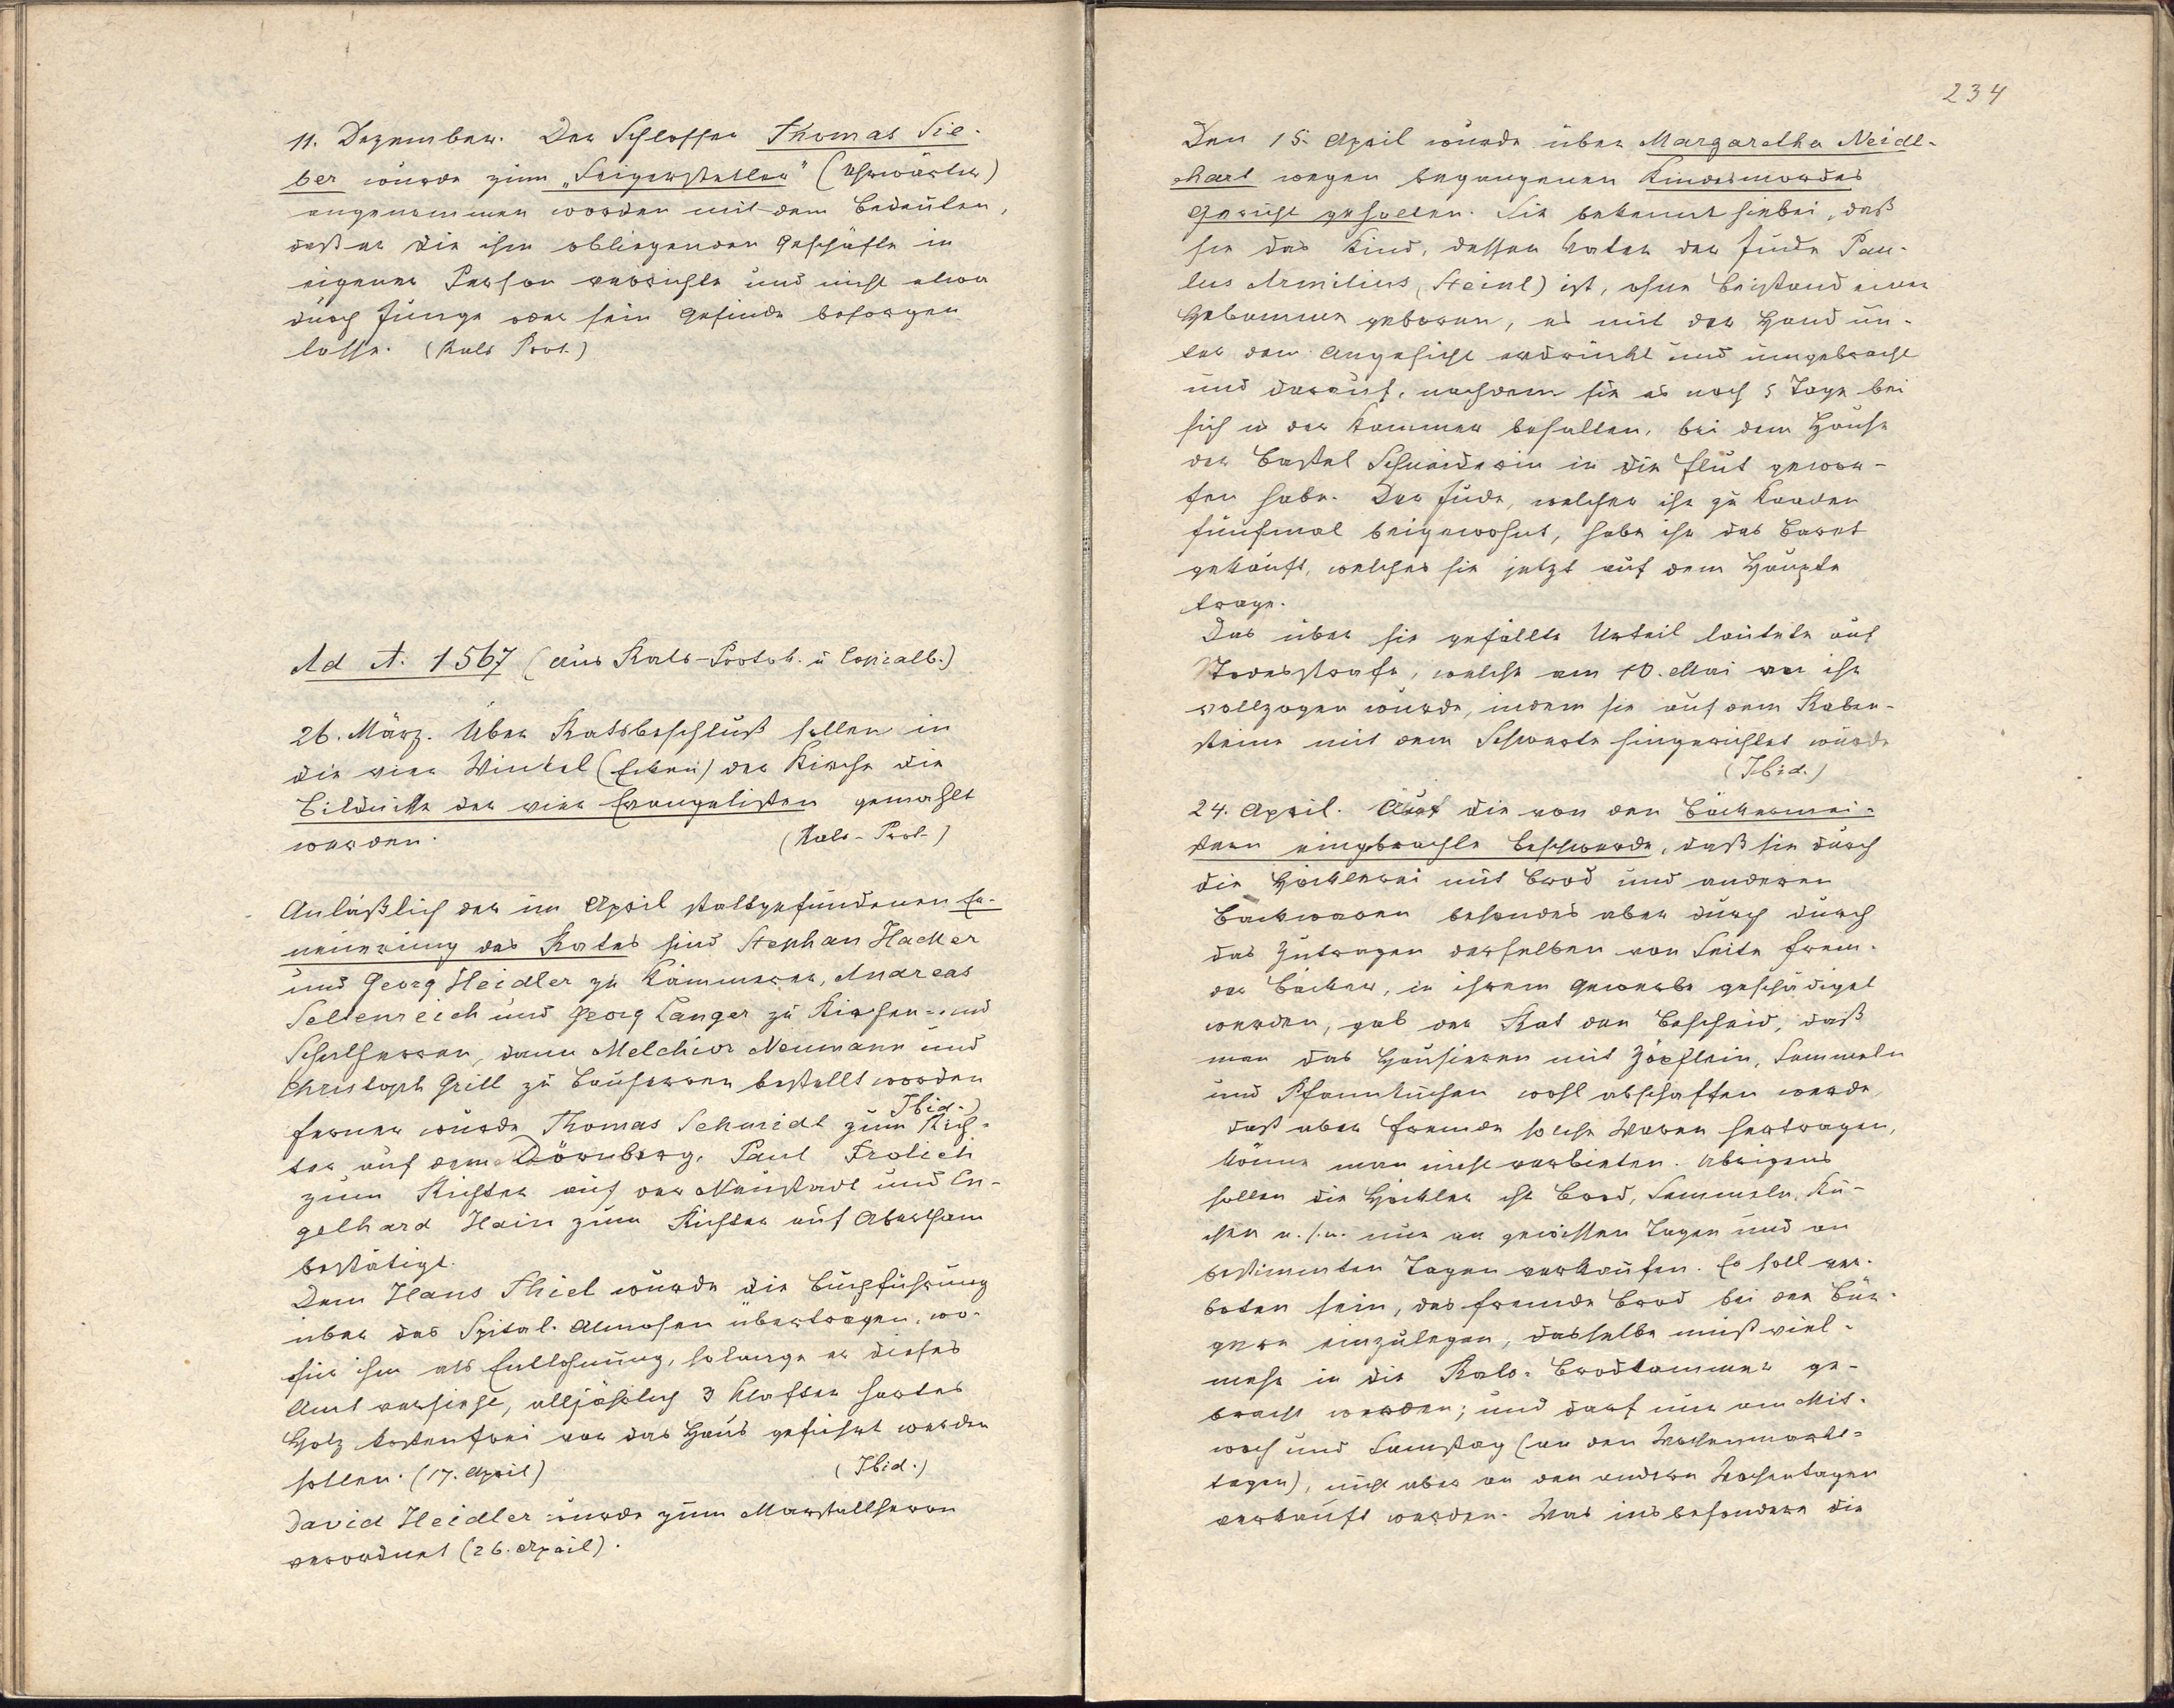 11. Dezember. Der Schlosser Thomas Sie-
ber wurde zum „Seigersteller" (Uhrwärter)
angenommen worden mit dem Bedeuten,
daß er die ihm obliegenden Geschäfte in
eigener Person verrichte und nicht etwa
durch Junge oder sein Gesinde besorgen
lasse. (Rats Prot.)
Ad A. 1567 (aus Rats-Protok. u Copialb.)
26. März. Über Ratsbeschluß sollen in
die vier Winkel (Ecken) der Kirche die
Bildnisse der vier Evangelisten gemahlt
werden. (Rats-Prot.)
Anläßlich der im April stattgefundenen Er-
neuerung des Rates sind Stephan Hacker
und Georg Heidler zu Kämmerer, Andreas
Seltenreich und Georg Langer zu Kirchen- und
Schulherren, dann Melchior Neumann und
Christoph Grill zu Bauherren bestellt worden
Ibid.)
ferner wurde Thomas Schmidt zum Rich-
ter auf dem Dörnberg, Paul Frölich
zum Richter auf der Neustadt und En-
gelhard Hain zum Richter auf Abertham
bestätigt.
Dem Hans Thiel wurde die Buchführung
über das Spital-Almosen übertragen, wo-
für ihm als Entlohnung, solange er dieses
Amt versieht, alljährlich 3 Klafter hartes
Holz kostenfrei vor das Haus geführt werden
sollen. (17. April) (Ibid.)
David Heidler wurde zum Marstallherrn
verordnet (26. April).
234
Den 15. April wurde über Margaretha Neidl-
hart wegen begangenen Kindesmordes
Gericht gehalten. Sie bekennt hiebei, daß
sie das Kind, dessen Vater der Jude Pau-
lus Armilius (Steinl) ist, ohne Beistand einer
Hebamme geboren, es mit der Hand un-
ter dem Angesicht erdrückt und umgebracht
und darauf, nachdem sie es noch 5 Tage bei
sich in der Kammer behalten, bei dem Hause
der Bastel Schneiderin in die Flut gewor-
fen habe. Der Jude, welcher ihr zu Kaaden
fünfmal beigewohnt, habe ihr das Baret
gekauft, welches sie jetzt auf dem Haupte
trage.
Das über sie gefällte Urteil lautete auf
Todesstrafe, welche am 10. Mai an ihr
vollzogen wurde, indem sie auf dem Raben-
steine mit dem Schwerte hingerichtet wurde
(Ibid.)
24. April. Auf die von den Bäckermei-
stern eingebrachte Beschwerde, daß sie durch
die Höcklerei mit Brod und anderen
Backwaren besondes aber durch durch
das Zutragen derselben von Seite frem-
der Bäcker, in ihrem Gewerbe geschädiget
werden, gab der Rat den Bescheid, daß
man das Hausieren mit Zöpflein, Semmeln
und Pfannkuchen wohl abschaffen werde,
daß aber Fremde solche Waren hertragen,
könne man nicht verbieten. Übrigens
sollen die Höckler ihr Brod, Semmeln, Ku-
chen u.s.w. nur an gewissen Tagen und an
bestimmten Tagen verkaufen. Es soll ver-
boten sein, das fremde Brod bei den Bür-
gern einzulegen, dasselbe muß viel-
mehr in die Rats-Brodkammer ge-
bracht werden; und darf nur am Mit-
woch und Samstag (an den Wochenmarkt-
tagen), nicht aber an den andern Wochentagen
verkauft werden. Was insbesondere die